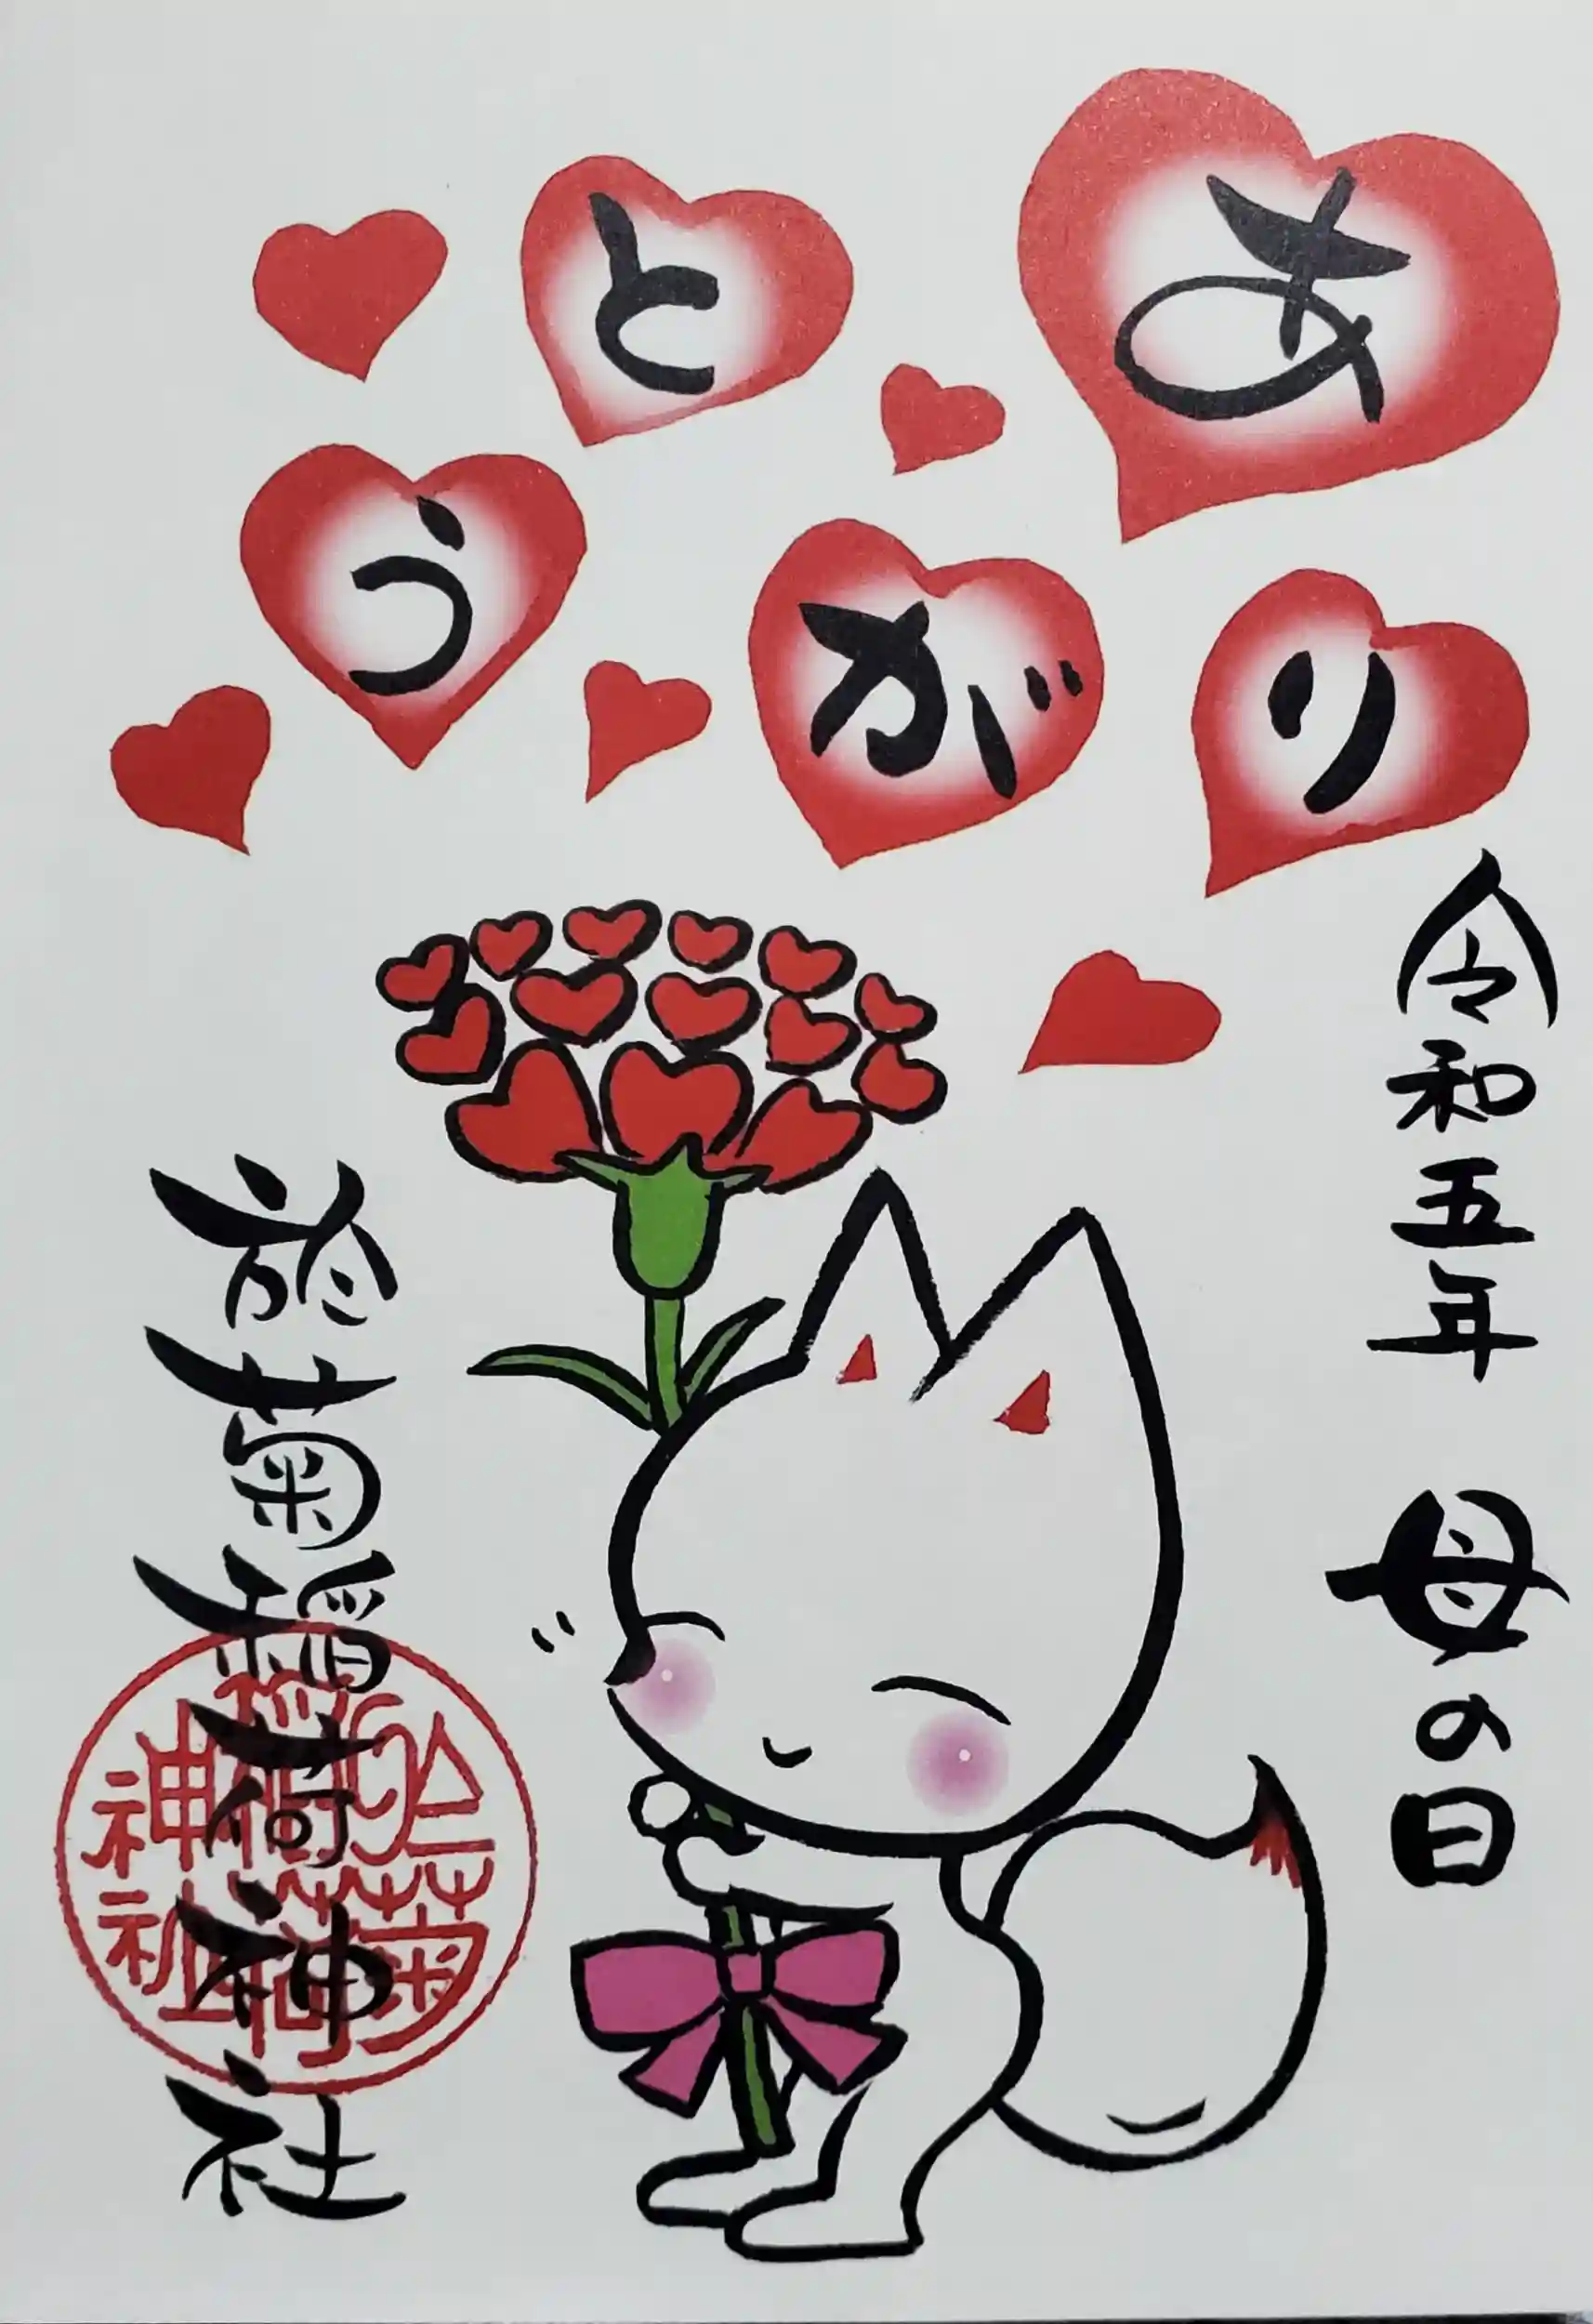 ありがとう
令和五年 母の日
於菊稲荷神社
於菊
稲荷
神社